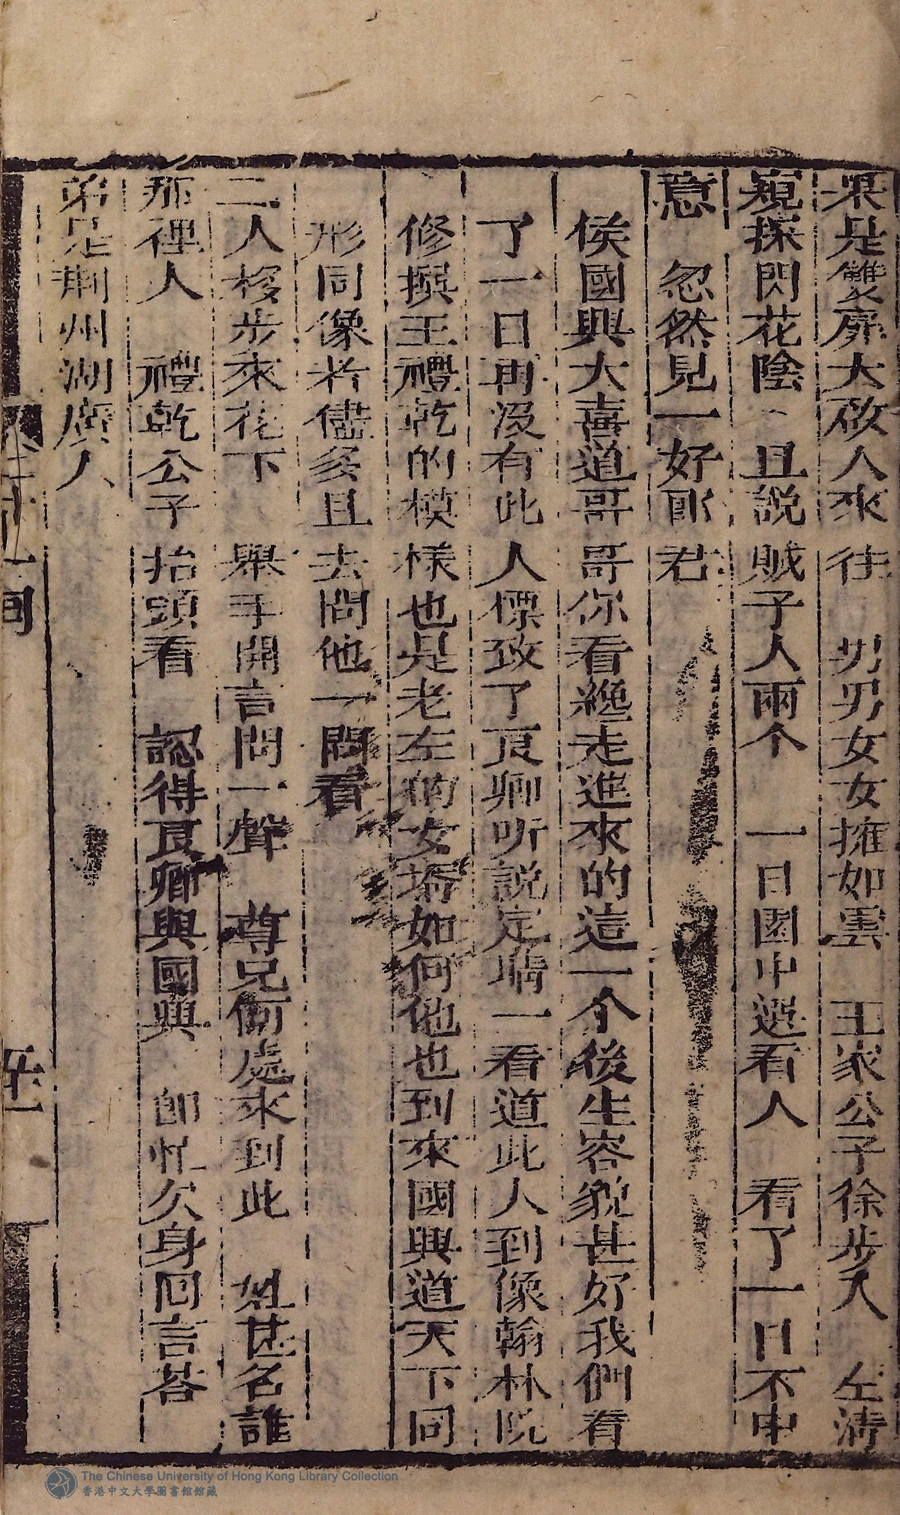 果是雙扉大啟人來往　男男女女擁如雲　王家公子徐步入　左清
窺探閃花陰　且說賊子人兩个　一日園中選看人　看了一日不中
意　忽然見一好郎君
侯國興大喜道哥哥你看纔走進來的這一个後生容貌甚好我們看
了一日再沒有此人標致了良卿听說定睛一看道此人到像翰林院
修撰王禮乾的模樣也是老左的女壻如何他也到來國興道天下同
形同像者儘多且去問他一問看
二人移步來花下　舉手開言問一聲　尊兄何處來到此　姓甚名誰
那裡人　禮乾公子抬頭看　認得良卿與國興　即忙欠身回言答
弟是荆州湖廣人
The Chinese University of Hong Kong Library Collection
香港中文大學圖書館館藏